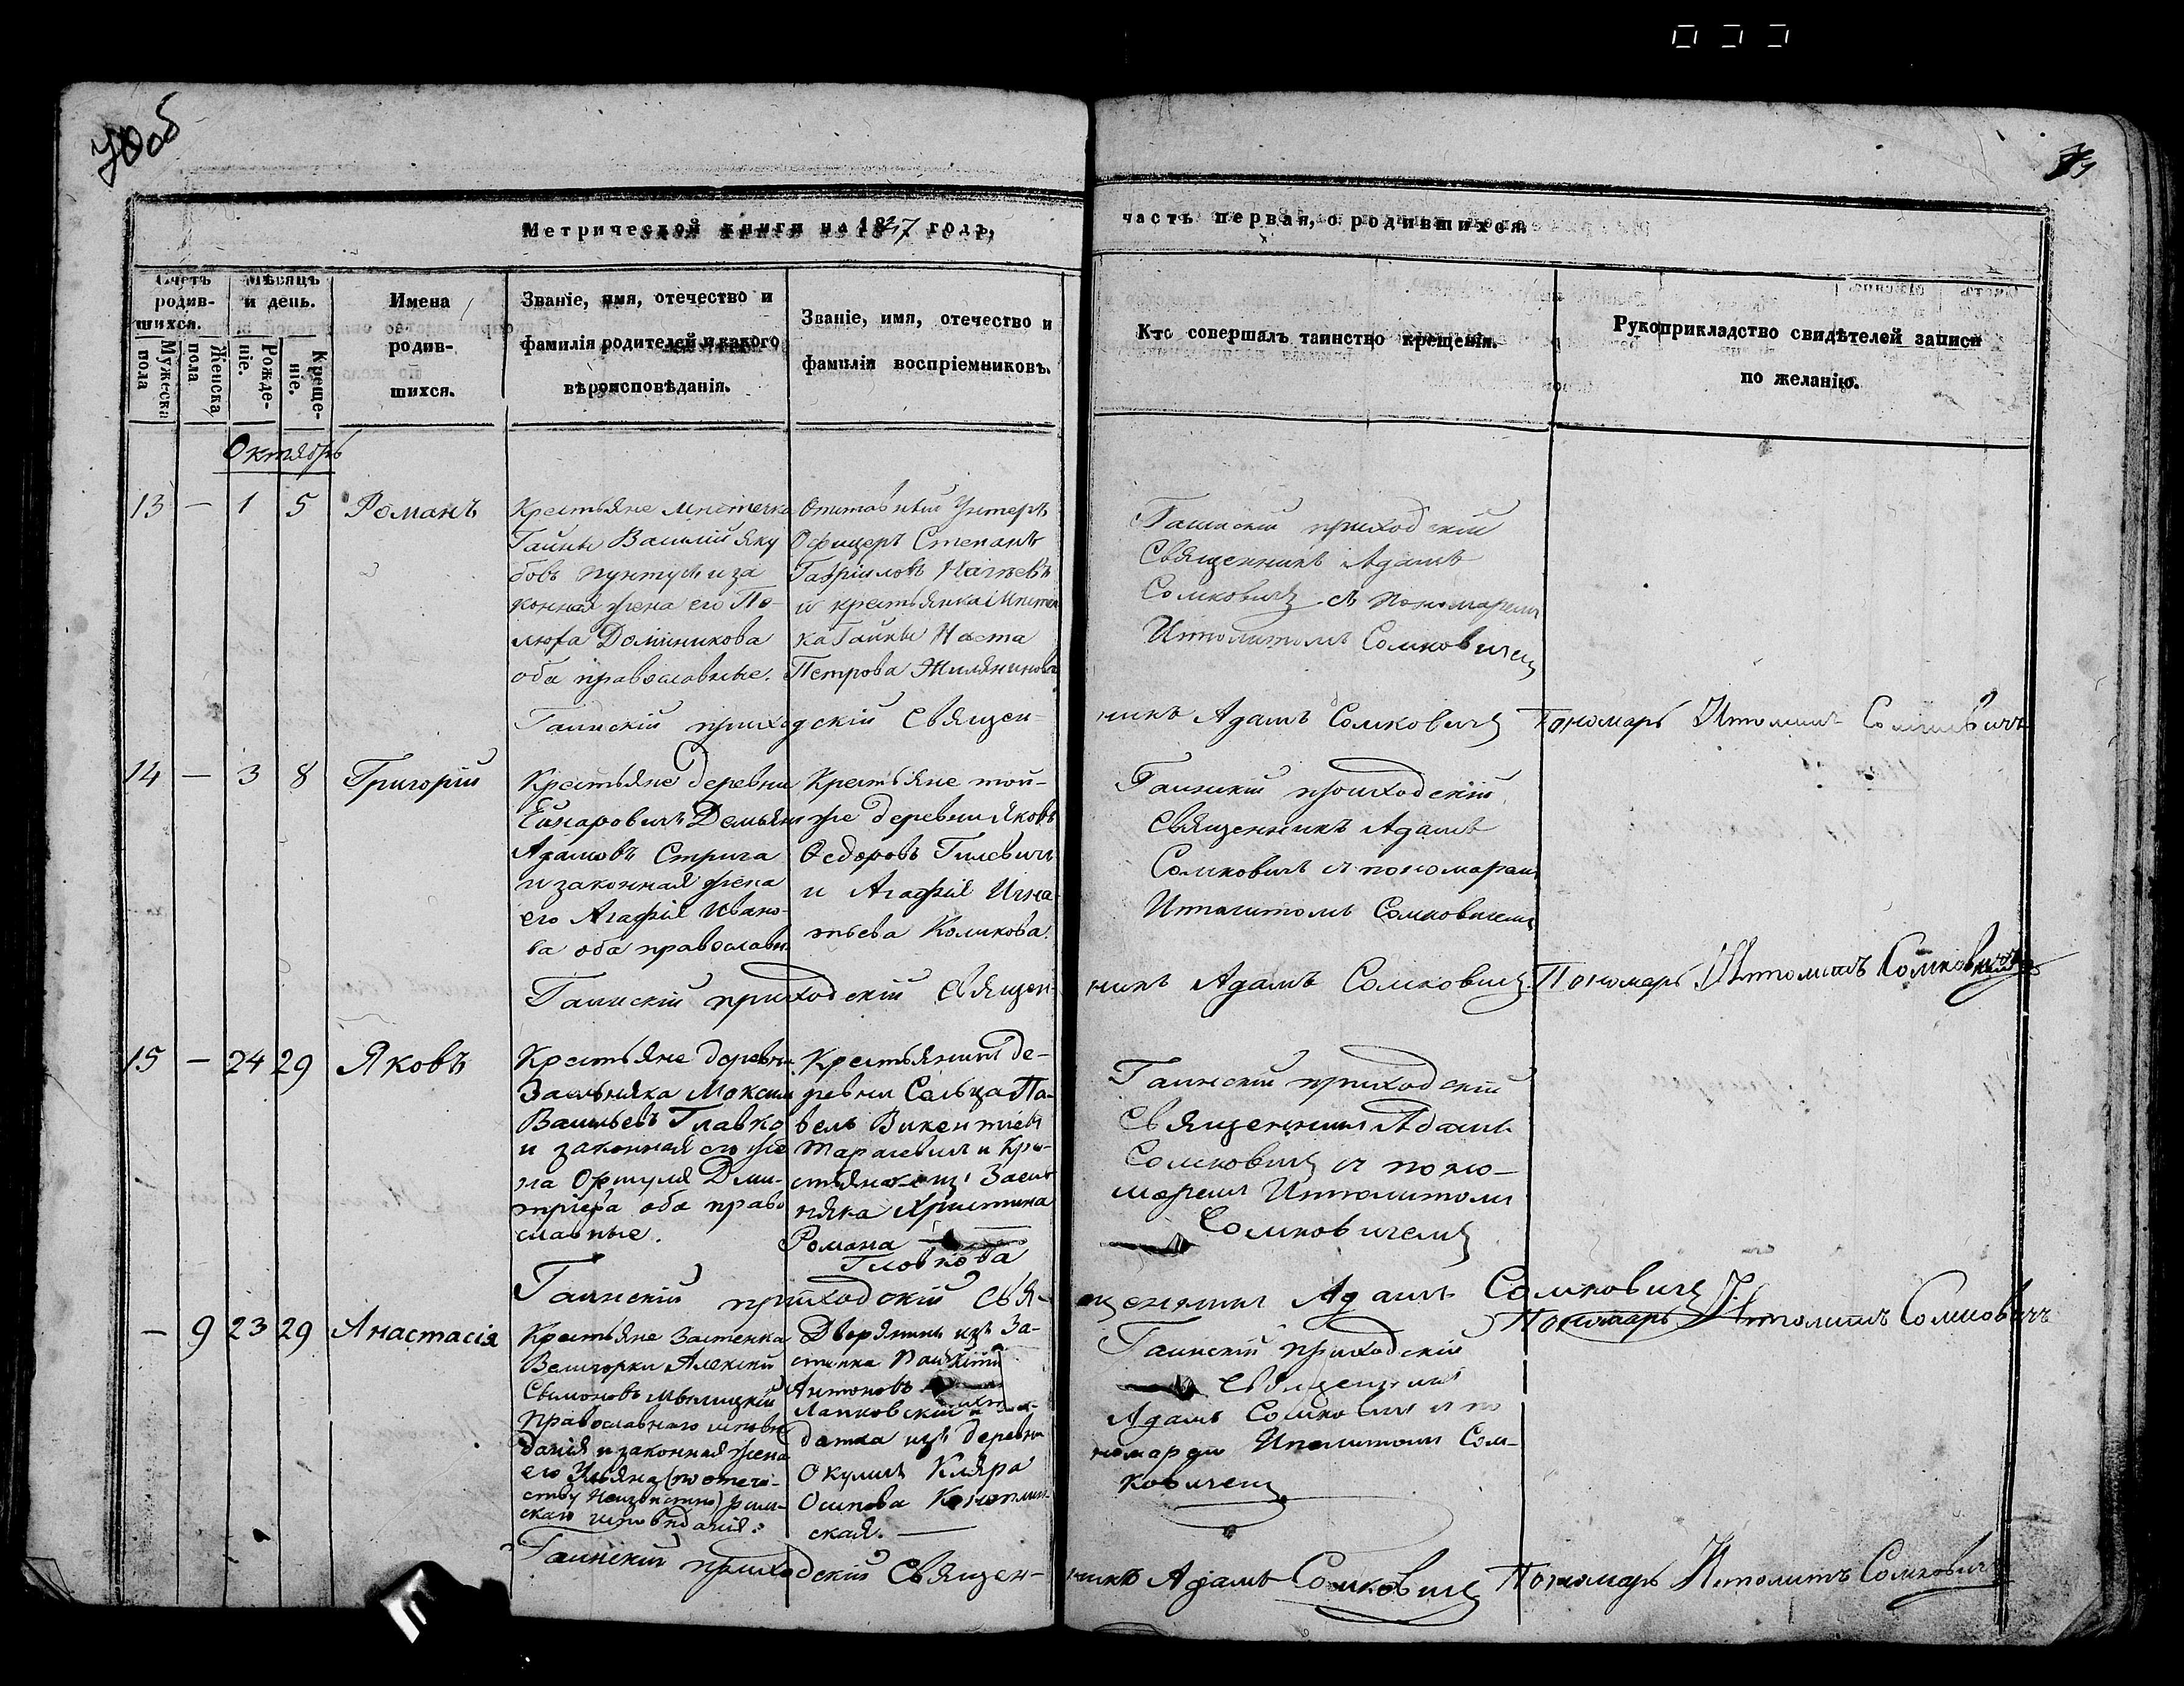 70об
Метрической книги на 1837 годъ,
часть первая, о родившихся.
Счетъ родив-
шихся.
Мужеска
пола
Женска
пола
Мѣсяцъ
и день.
Рожде-
ніе.
Креще-
ніе.
Имена
родив-
шихся.
Званіе, имя, отечество и
фамилія родителей и какого
вѣроисповѣданія.
Званіе, имя, отечество и
фамиліи воспріемниковъ.
Кто совершалъ таинство крещенія.
Рукоприкладство свидѣтелей записи
по желанію.
Октябрь
13 — 1 5 Романъ
Крестьяне мѣстечка
Гайны Василій Яку
бовъ и за
конная жена его По-
Доминикова
оба православные.
Отставный Унтеръ
Офицеръ Степанъ
Гавріиловъ
и крестьянка Мѣстеч
ка Гайны Наста
Петрова
Гаинскій приходскій
Священникъ Адамъ
Сомковичъ съ пономаремъ
Иполитомъ Сомковичемъ
Гаинскій приходскій Священ-
никъ Адамъ Сомковичъ Пономарь Иполитъ Сомковичъ
14 — 3 8 Григорій
Крестьяне деревни
Демьянъ
Адамовъ Стрига
и законная жена
его Агафія Ивано-
ва оба православн.
Крестьяне той-
же деревни Яковъ
Ѳедоровъ Гилевичъ
и Агафія Игна-
тьева Коликова.
Гаинскій приходскій
Священникъ Адамъ
Сомковичъ съ пономаремъ
Иполитомъ Сомковичемъ
Гаинскій приходскій Священ-
никъ Адамъ Сомковичъ Пономарь Иполитъ Сомковичъ
15 — 24 29 Яковъ
Крестьяне деревни
Максим
Васильевъ Главко
и законная его же
на Дми-
тріева оба право
славные.
Крестьянинъ де-
ревни Сельца Па-
велъ Викентіевъ
Тарасевичъ и Кре-
стьянка изъ Засѣт
няка Христина
Романа
Гловкова
Гаинскій приходскій
Священникъ Адамъ
Сомковичъ съ поно-
маремъ Иполитомъ
Сомковичемъ
Гаинскій приходскій Свя-
щенникъ Адамъ Сомковичъ
Пономарь Иполитъ Сомковичъ
— 9 23 29 Анастасія
Крестьяне Застенка
Велигорки Алексѣй
Сымоновъ
Православнаго исповѣ
данія и законная жена
его Ульяна (по отече-
ству Неизвѣстно) рим-
скаго исповѣданія.
Дворянинъ изъ За-
стенка
Антоновъ
Лапковскій и Сол-
датка изъ деревни
Окулич Кляра
Осипова
ская. —
Гаинскій приходскій
Священникъ
Адамъ Сомковичъ съ по
номаремъ Иполитомъ Сом-
ковичемъ
Гаинскій приходскій Священ-
никъ Адамъ Сомковичъ Пономарь Иполитъ Сомковичъ